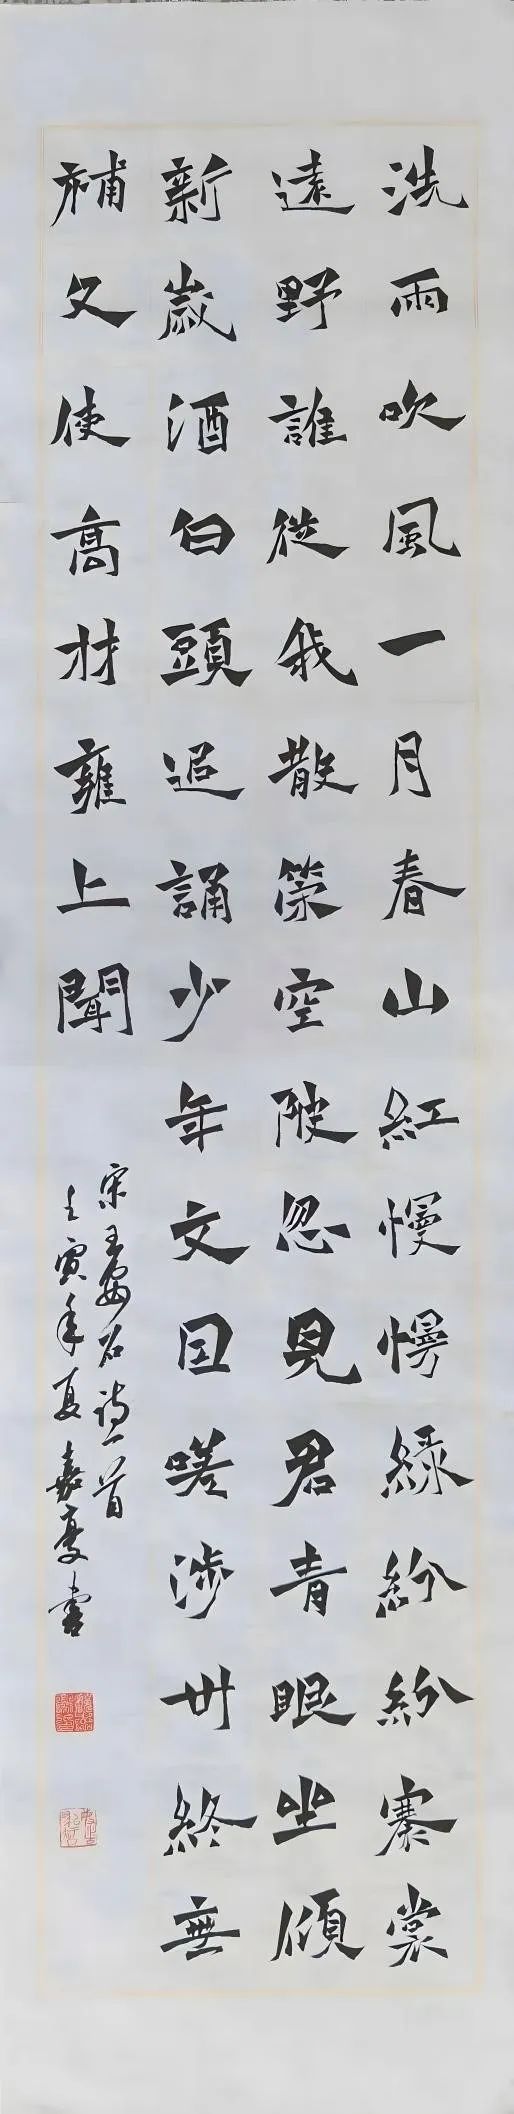 洗雨吹風一月春山紅慢慢綠紛紛寨裳
遠野誰從我散策空陂忽見君青眼坐傾
新歲酒白頭追誦少年文因嗟涉世終無
補久使高材雍上聞
宋王安石诗一首
壬寅年夏嘉慶書